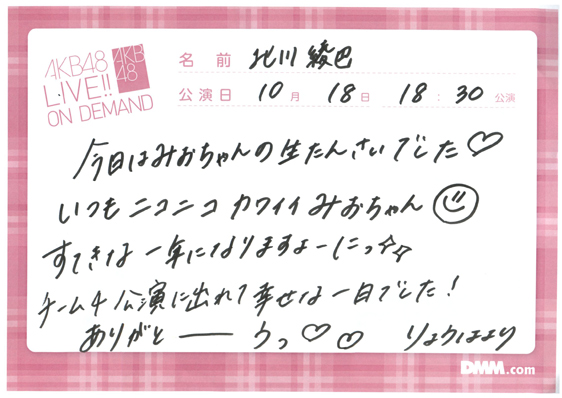 AKB48
LIVE!!
ON DEMAND
AKB
48
名前 北川 綾巴
公演日 10月 18日 18:30公演
今日はみおちゃんの生たんさいでした♡
いつもニコニコ カワイイ みおちゃん
すてきな一年になりますよーにっ☆☆
チーム4 公演に出れて幸せな一日でした!
ありがとーーうっ♡♡ りょうはより
DMM.com